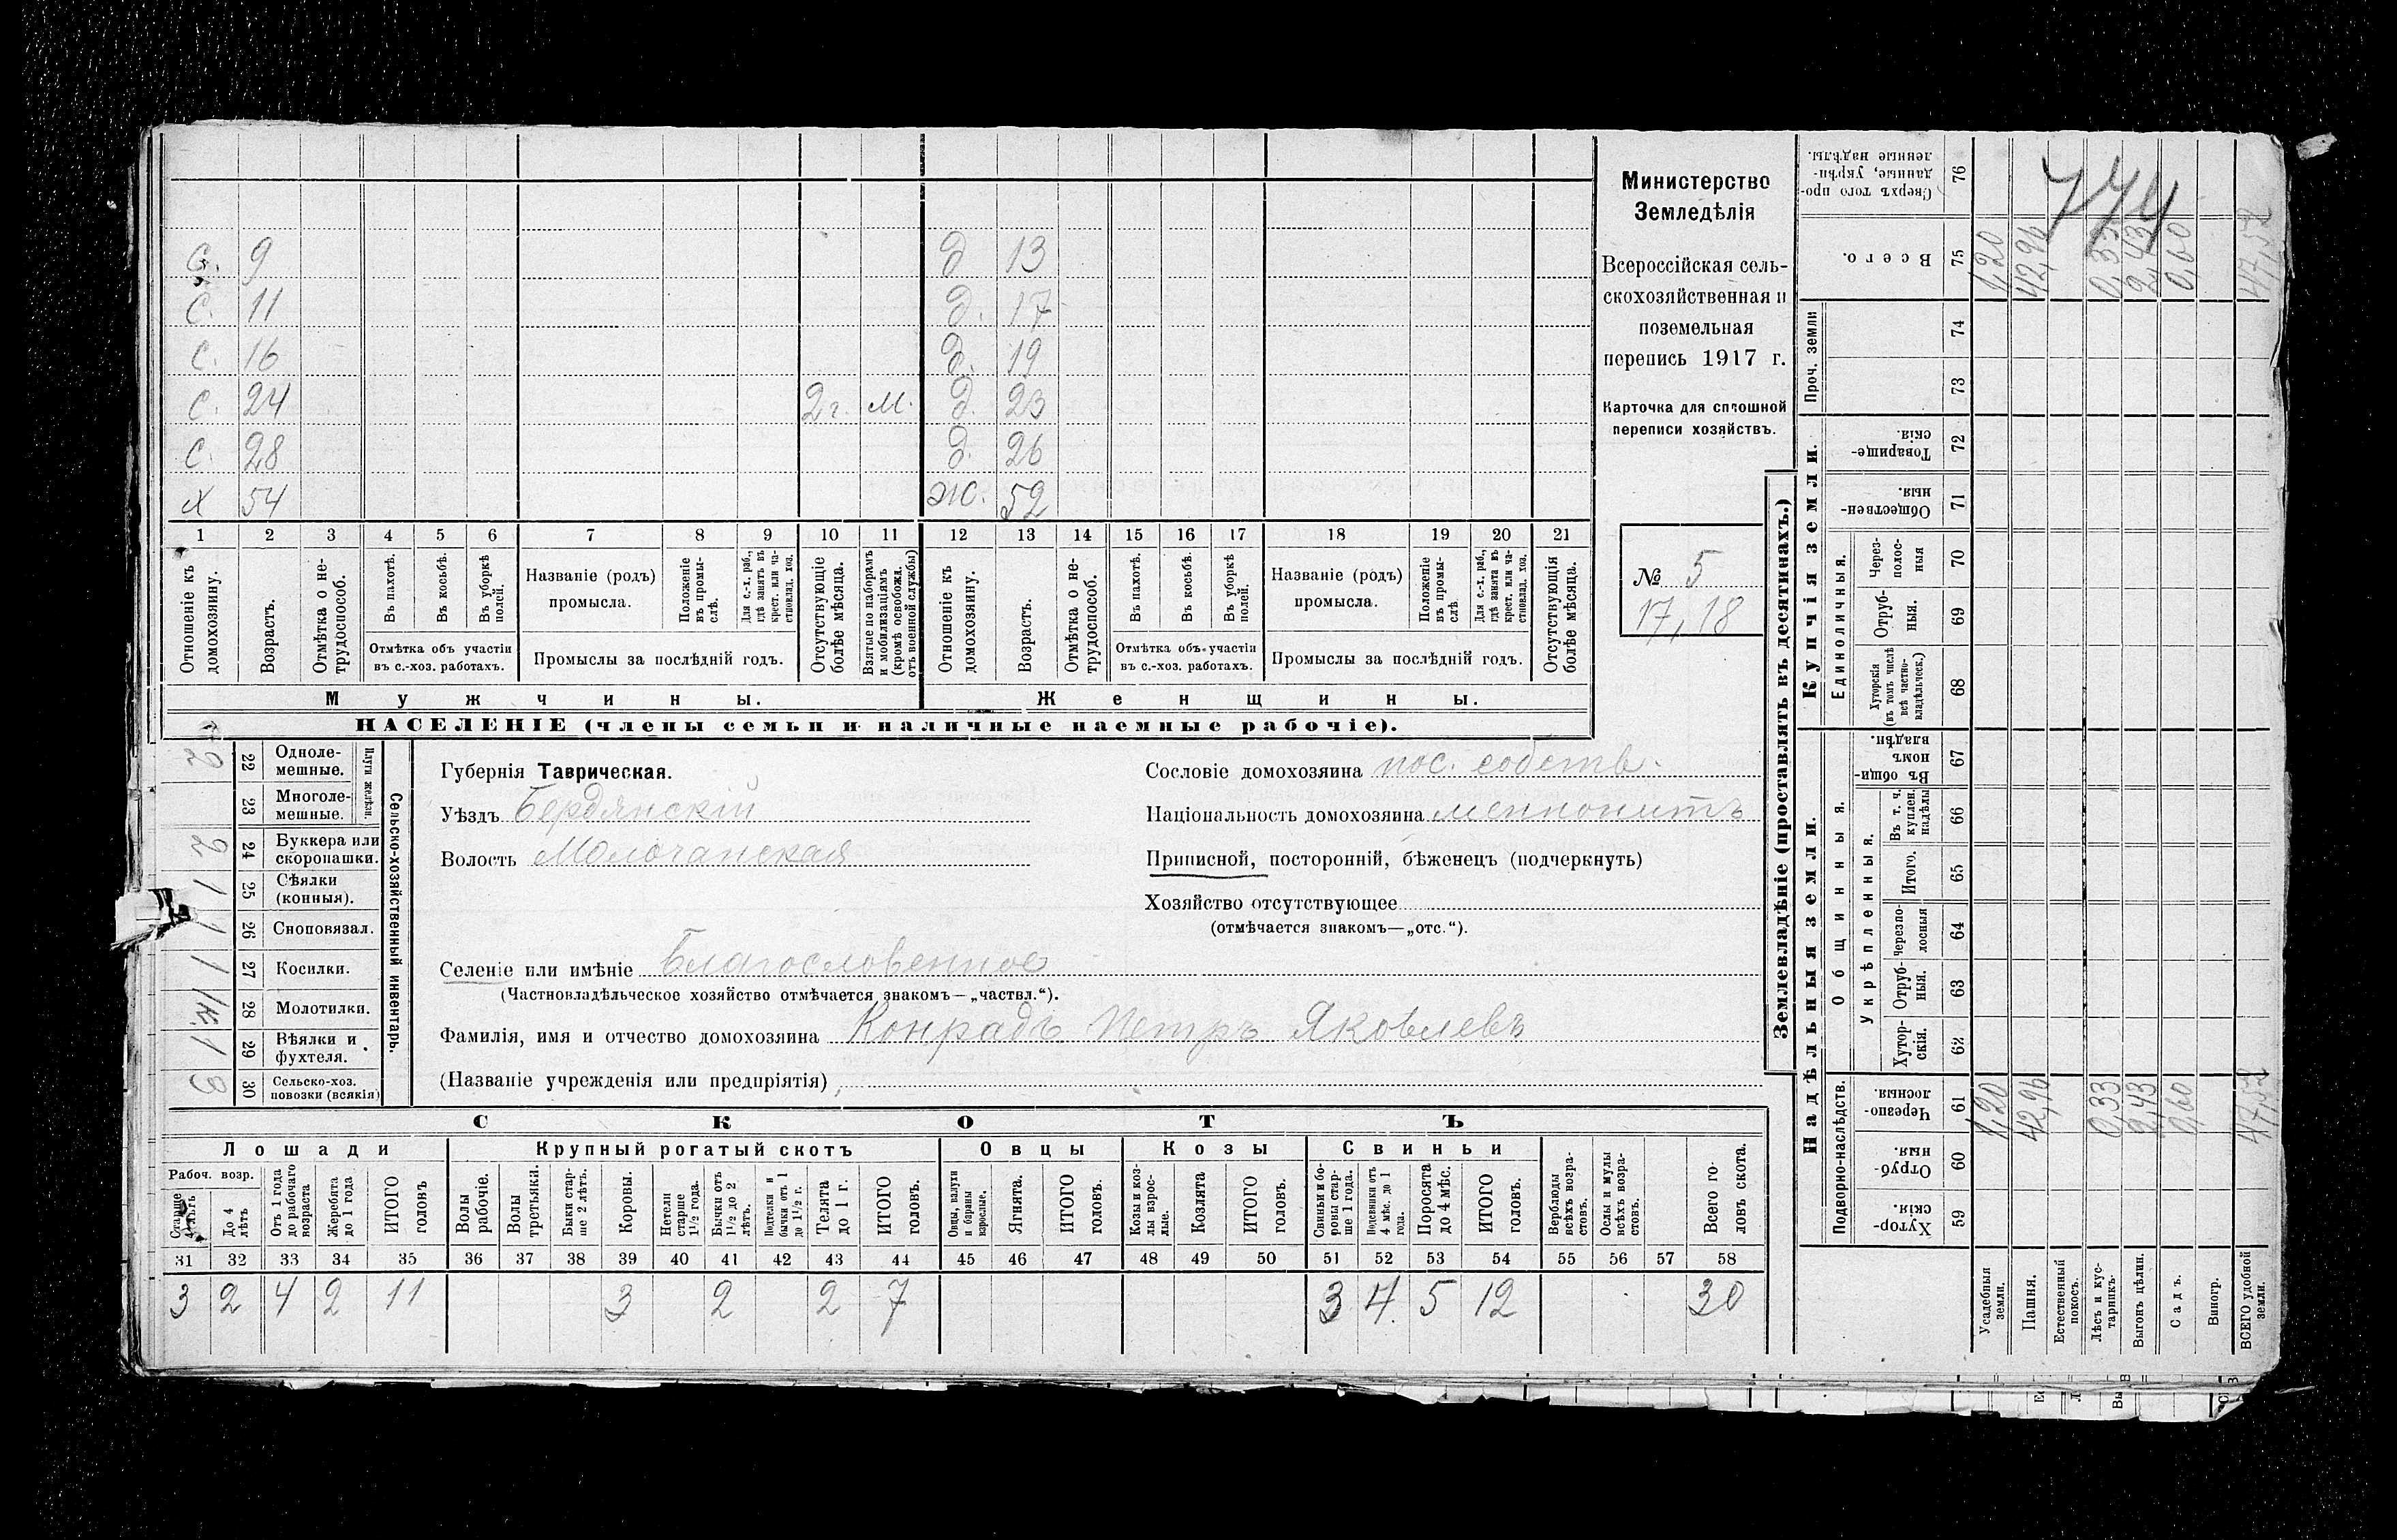 Министерство
Земледѣлія
Всероссійская сель-
скохозяйственная и
поземельная
перепись 1917 г.
Карточка для сплошной
переписи хозяйствъ.
№ 5
17, 18
774
С. 9 д 13
С. 11 д. 17
С. 16 д. 19
С. 24 2 г. М. д. 23
С. 28 д. 26
Х 54 Ж. 52
1 2 3 4 5 6 7 8 9 10 11 12 13 14 15 16 17 18 19 20 21
Отношеніе къ домохозяину.
Возрастъ.
Отмѣтка о не-трудоспособ.
Въ пахотѣ.
Въ косьбѣ.
Въ уборкѣ полей.
Отмѣтка объ участіи
въ с.-хоз. работахъ.
Названіе (родъ)
промысла.
Положеніе въ промы-слѣ.
Для с.-х. раб., гдѣ занятъ въ крест. или ча-стновлад. хоз.
Промыслы за послѣдній годъ.
Отсутствующіе болѣе мѣсяца.
Взятые по наборамъ и мобилизаціямъ (кромѣ освобожд. отъ военной службы)
Отношеніе къ домохозяину.
Возрастъ.
Отмѣтка о не-трудоспособ.
Въ пахотѣ.
Въ косьбѣ.
Въ уборкѣ полей.
Отмѣтка объ участіи
въ с.-хоз. работахъ.
Названіе (родъ)
промысла.
Положеніе въ промы-слѣ
Для с.-х. раб., гдѣ занята въ крест. или ча-стновлад. хоз.
Промыслы за послѣдній годъ.
Отсутствующія болѣе мѣсяца.
Мужчины. Женщины.
НАСЕЛЕНІЕ (члены семьи и наличные наемные рабочіе).
Сельско-хозяйственный инвентарь.
Плуги желѣзн.
2 22 Одноле-мешные.
23 Многоле-мешные.
2 24 Буккера или скоропашки.
1 25 Сѣялки (конныя).
1 26 Сноповязал.
1 27 Косилки.
1 к. 28 Молотилки.
1 29 Вѣялки и фухтеля.
3 30 Сельско-хоз. повозки (всякія)
Губернія Таврическая.
Уѣздъ Бердянскій
Волость Молочанская
Селеніе или имѣніе Благословенное
(Частновладѣльческое хозяйство отмѣчается знакомъ—„частвл.“).
Фамилія, имя и отчество домохозяина Конрадъ Петръ Яковлевъ
(Названіе учрежденія или предпріятія)
Сословіе домохозяина пос. собств.
Національность домохозяина меннонитъ
Приписной, посторонній, бѣженецъ (подчеркнуть)
Хозяйство отсутствующее
(отмѣчается знакомъ—„отс.“).
СКОТЪ
Лошади Крупный рогатый скотъ Овцы Козы Свиньи
Рабоч. возр.
Старше 4 лѣтъ
До 4 лѣтъ
Отъ 1 года до рабочаго возраста
Жеребята до 1 года
ИТОГО головъ
Волы рабочіе.
Волы третьяки.
Быки стар-ше 2 лѣтъ.
Коровы.
Нетели старше 1½ года.
Бычки отъ 1½ до 2 лѣтъ.
бычки отъ 1 до 1½ г.
Телята до 1 г.
ИТОГО головъ.
Овцы, валухи и бараны взрослые.
Ягнята.
ИТОГО головъ.
Козы и коз-лы взрос-лые.
Козлята
ИТОГО головъ.
Свиньи и бо-ровы стар-ше 1 года.
Подсвинки отъ 4 мѣс. до 1 года.
Поросята до 4 мѣс.
ИТОГО головъ.
Верблюды всѣхъ возра-стовъ.
Ослы и мулы всѣхъ возра-стовъ.
Всего го-ловъ скота.
31 32 33 34 35 36 37 38 39 40 41 42 43 44 45 46 47 48 49 50 51 52 53 54 55 56 57 58
3 2 4 2 11 3 2 2 7 3 4 5 12 30
Землевладѣніе (проставлять въ десятинахъ.)
Надѣльныя земли. Купчія земли. Проч. земли
Подворно-наслѣдств. Общинныя. Единоличныя.
Укрѣпленныя.
Хутор-скія. 59
Отруб-ныя. 60
Черезпо-лосныя. 61
Хутор-скія. 62
Отруб-ныя. 63
Черезпо-лосныя 64
Итого. 65
Въ т. ч. куплен. надѣлы 66
Въ общин-номъ владѣн. 67
Хуторскія (въ томъ числѣ всѣ частно-владѣльческ.) 68
Отруб-ныя. 69
Через-полос-ныя 70
Обществен-ныя. 71
Товарище-скія. 72
73
74
Всего. 75
Сверхъ того про-данные, укрѣп-ленные надѣлы. 76
Усадебныя земли. 1,20 1,20
Пашня. 42,96 42,96
Естественный покосъ.
Лѣсъ и кус-тарникъ. 0,33 0,33
Выгонъ цѣлин. 2,43 2,43
Садъ. 0,60 0,60
Виногр.
ВСЕГО удобной земли. 47,52 47,52